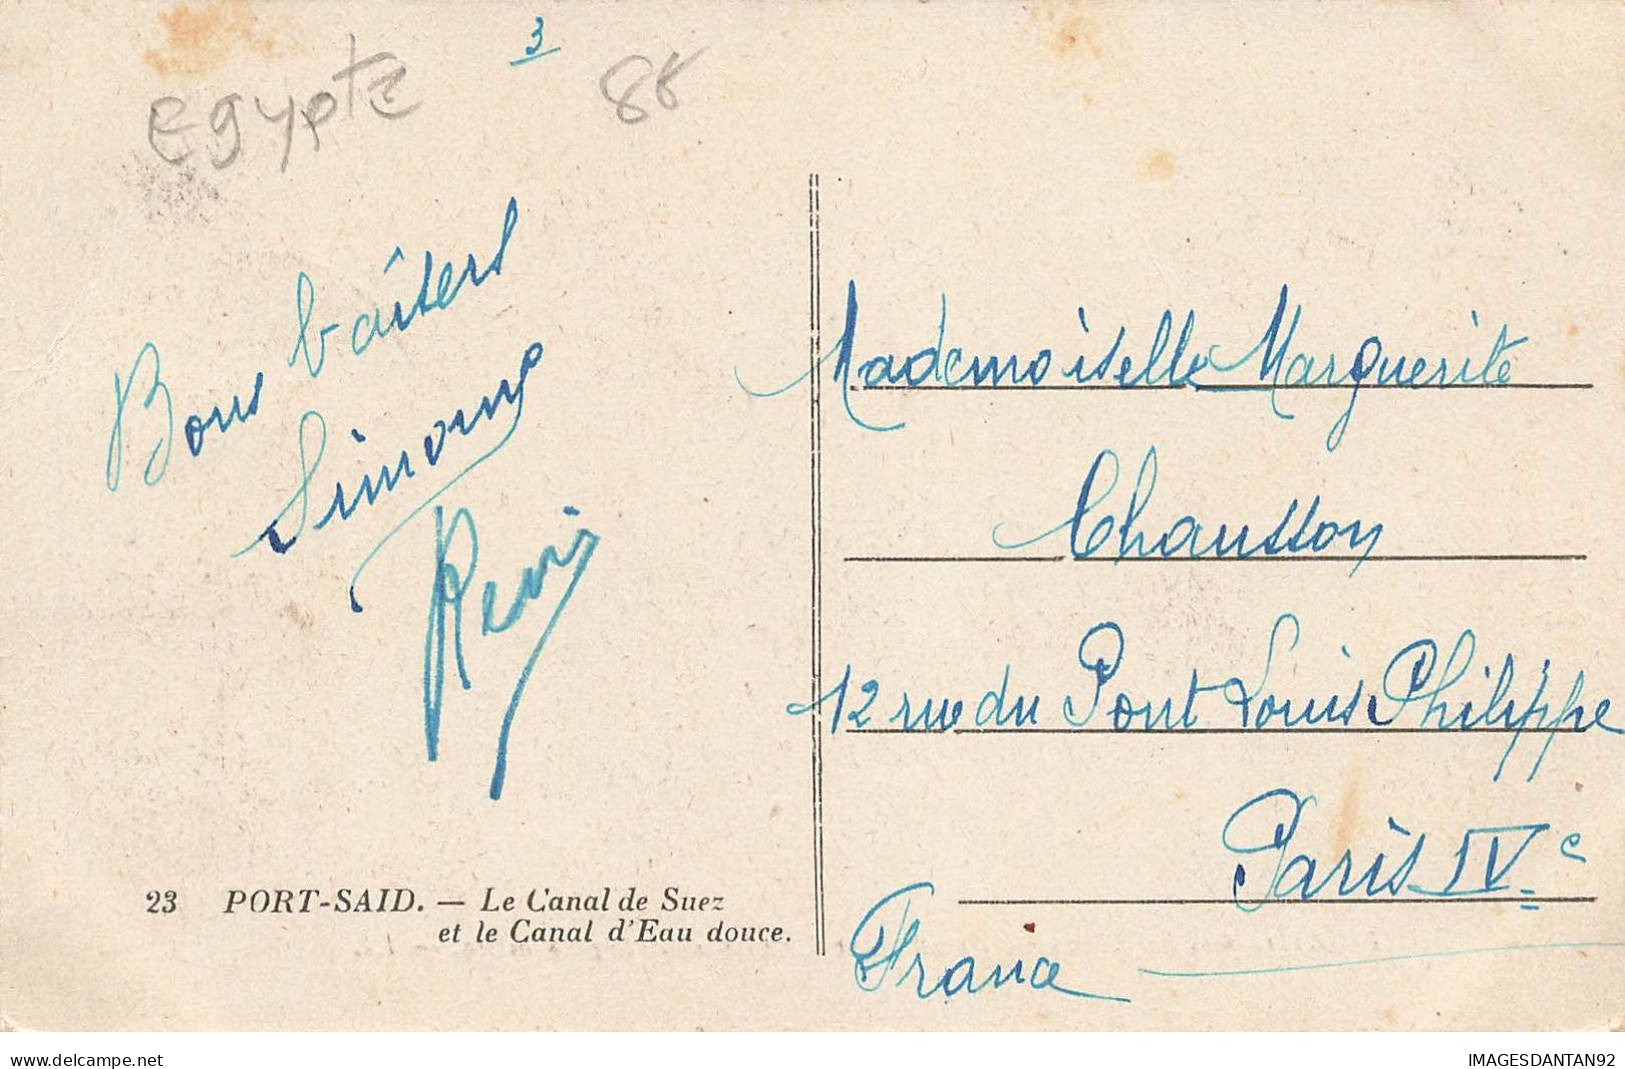 3
egypte
Bons baisers
Simone
Mademoiselle Marguerite
Chausson
12 rue du Pont Louis Philippe
Paris IVe
France
23 PORT-SAID. — Le Canal de Suez
et le Canal d'Eau douce.
delcampe.net
IMAGESDANTAN92